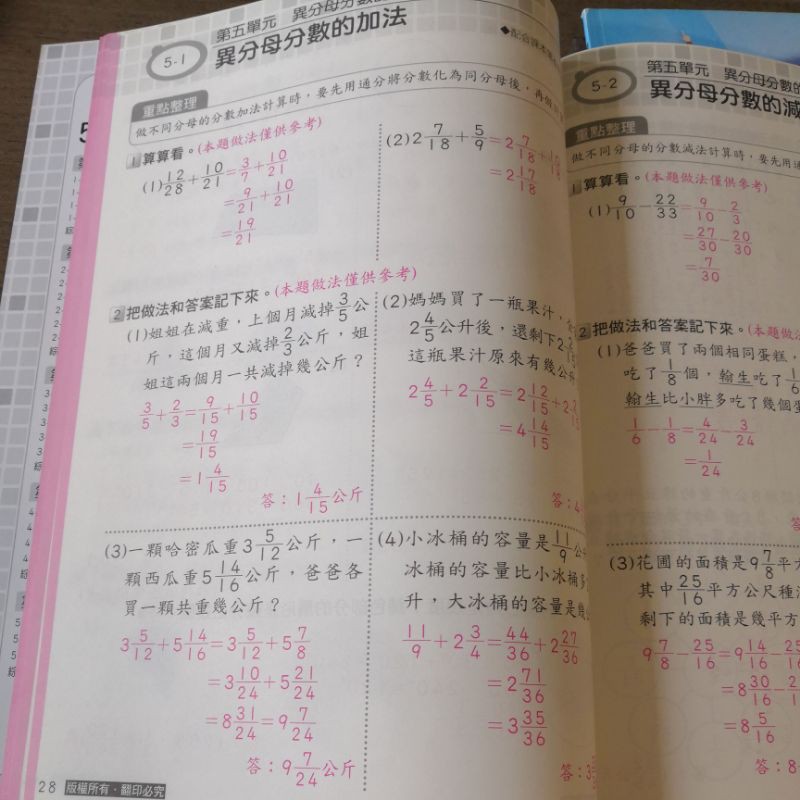 5-1
第五單元 異分母分數的
異分母分數的加法
重點整理
做不同分母的分數加法計算時，要先用通分將分數化為同分母後，再
1 算算看。(本題做法僅供參考)
(1) 12/28 + 10/21 = 3/7 + 10/21
= 9/21 + 10/21
= 19/21
(2) 2 7/18 + 5/9 = 2 7/18 + 10/18
= 2 17/18
2 把做法和答案記下來。(本題做法僅供參考)
(1)姐姐在減重，上個月減掉 3/5 公
斤，這個月又減掉 2/3 公斤，姐
姐這兩個月一共減掉幾公斤？
3/5 + 2/3 = 9/15 + 10/15
= 19/15
= 1 4/15
答：1 4/15 公斤
(2)媽媽買了一瓶果汁，
2 4/5 公升後，還剩下 2
這瓶果汁原來有幾公
2 4/5 + 2 2/15 = 2 12/15 + 2
= 4 14/15
答：4
(3)一顆哈密瓜重 3 5/12 公斤，一
顆西瓜重 5 14/16 公斤，爸爸各
買一顆共重幾公斤？
3 5/12 + 5 14/16 = 3 5/12 + 5 7/8
= 3 10/24 + 5 21/24
= 8 31/24 = 9 7/24
答：9 7/24 公斤
(4)小冰桶的容量是 11/9 公
冰桶的容量比小冰桶多
升，大冰桶的容量是幾
11/9 + 2 3/4 = 44/36 + 2 27/36
= 2 71/36
= 3 35/36
答：3
28 版權所有・翻印必究
5-2
第五單元 異分母分數的
異分母分數的減
重點整理
做不同分母的分數減法計算時，要先用通
1 算算看。(本題做法僅供參考)
(1) 9/10 − 22/33 = 9/10 − 2/3
= 27/30 − 20/30
= 7/30
2 把做法和答案記下來。(本題做法
(1)爸爸買了兩個相同蛋糕，
吃了 1/8 個，翰生吃了 1/6
翰生比小胖多吃了幾個蛋
1/6 − 1/8 = 4/24 − 3/24
= 1/24
答：
(3)花圃的面積是 9 7/8 平方
其中 25/16 平方公尺種
剩下的面積是幾平方
9 7/8 − 25/16 = 9 14/16 − 25/16
= 8 30/16 −
= 8 5/16
答：8